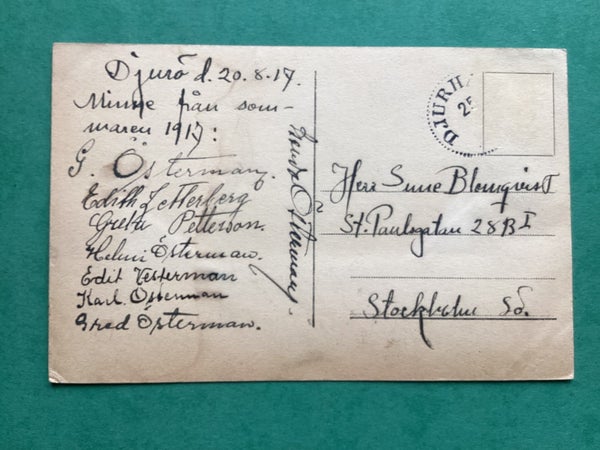 Djurö d. 20.8.17.
Minne från som-
maren 1917:
G. Österman.
Edith Zetterberg
Greta Petterson.
Helmi Österman.
Edit Vesterman
Karl Österman
Österman.
Österman.
DJURH
25
Herr Sune Blomqvist
St. Paulsgatan 28B I
Stockholm Sö.